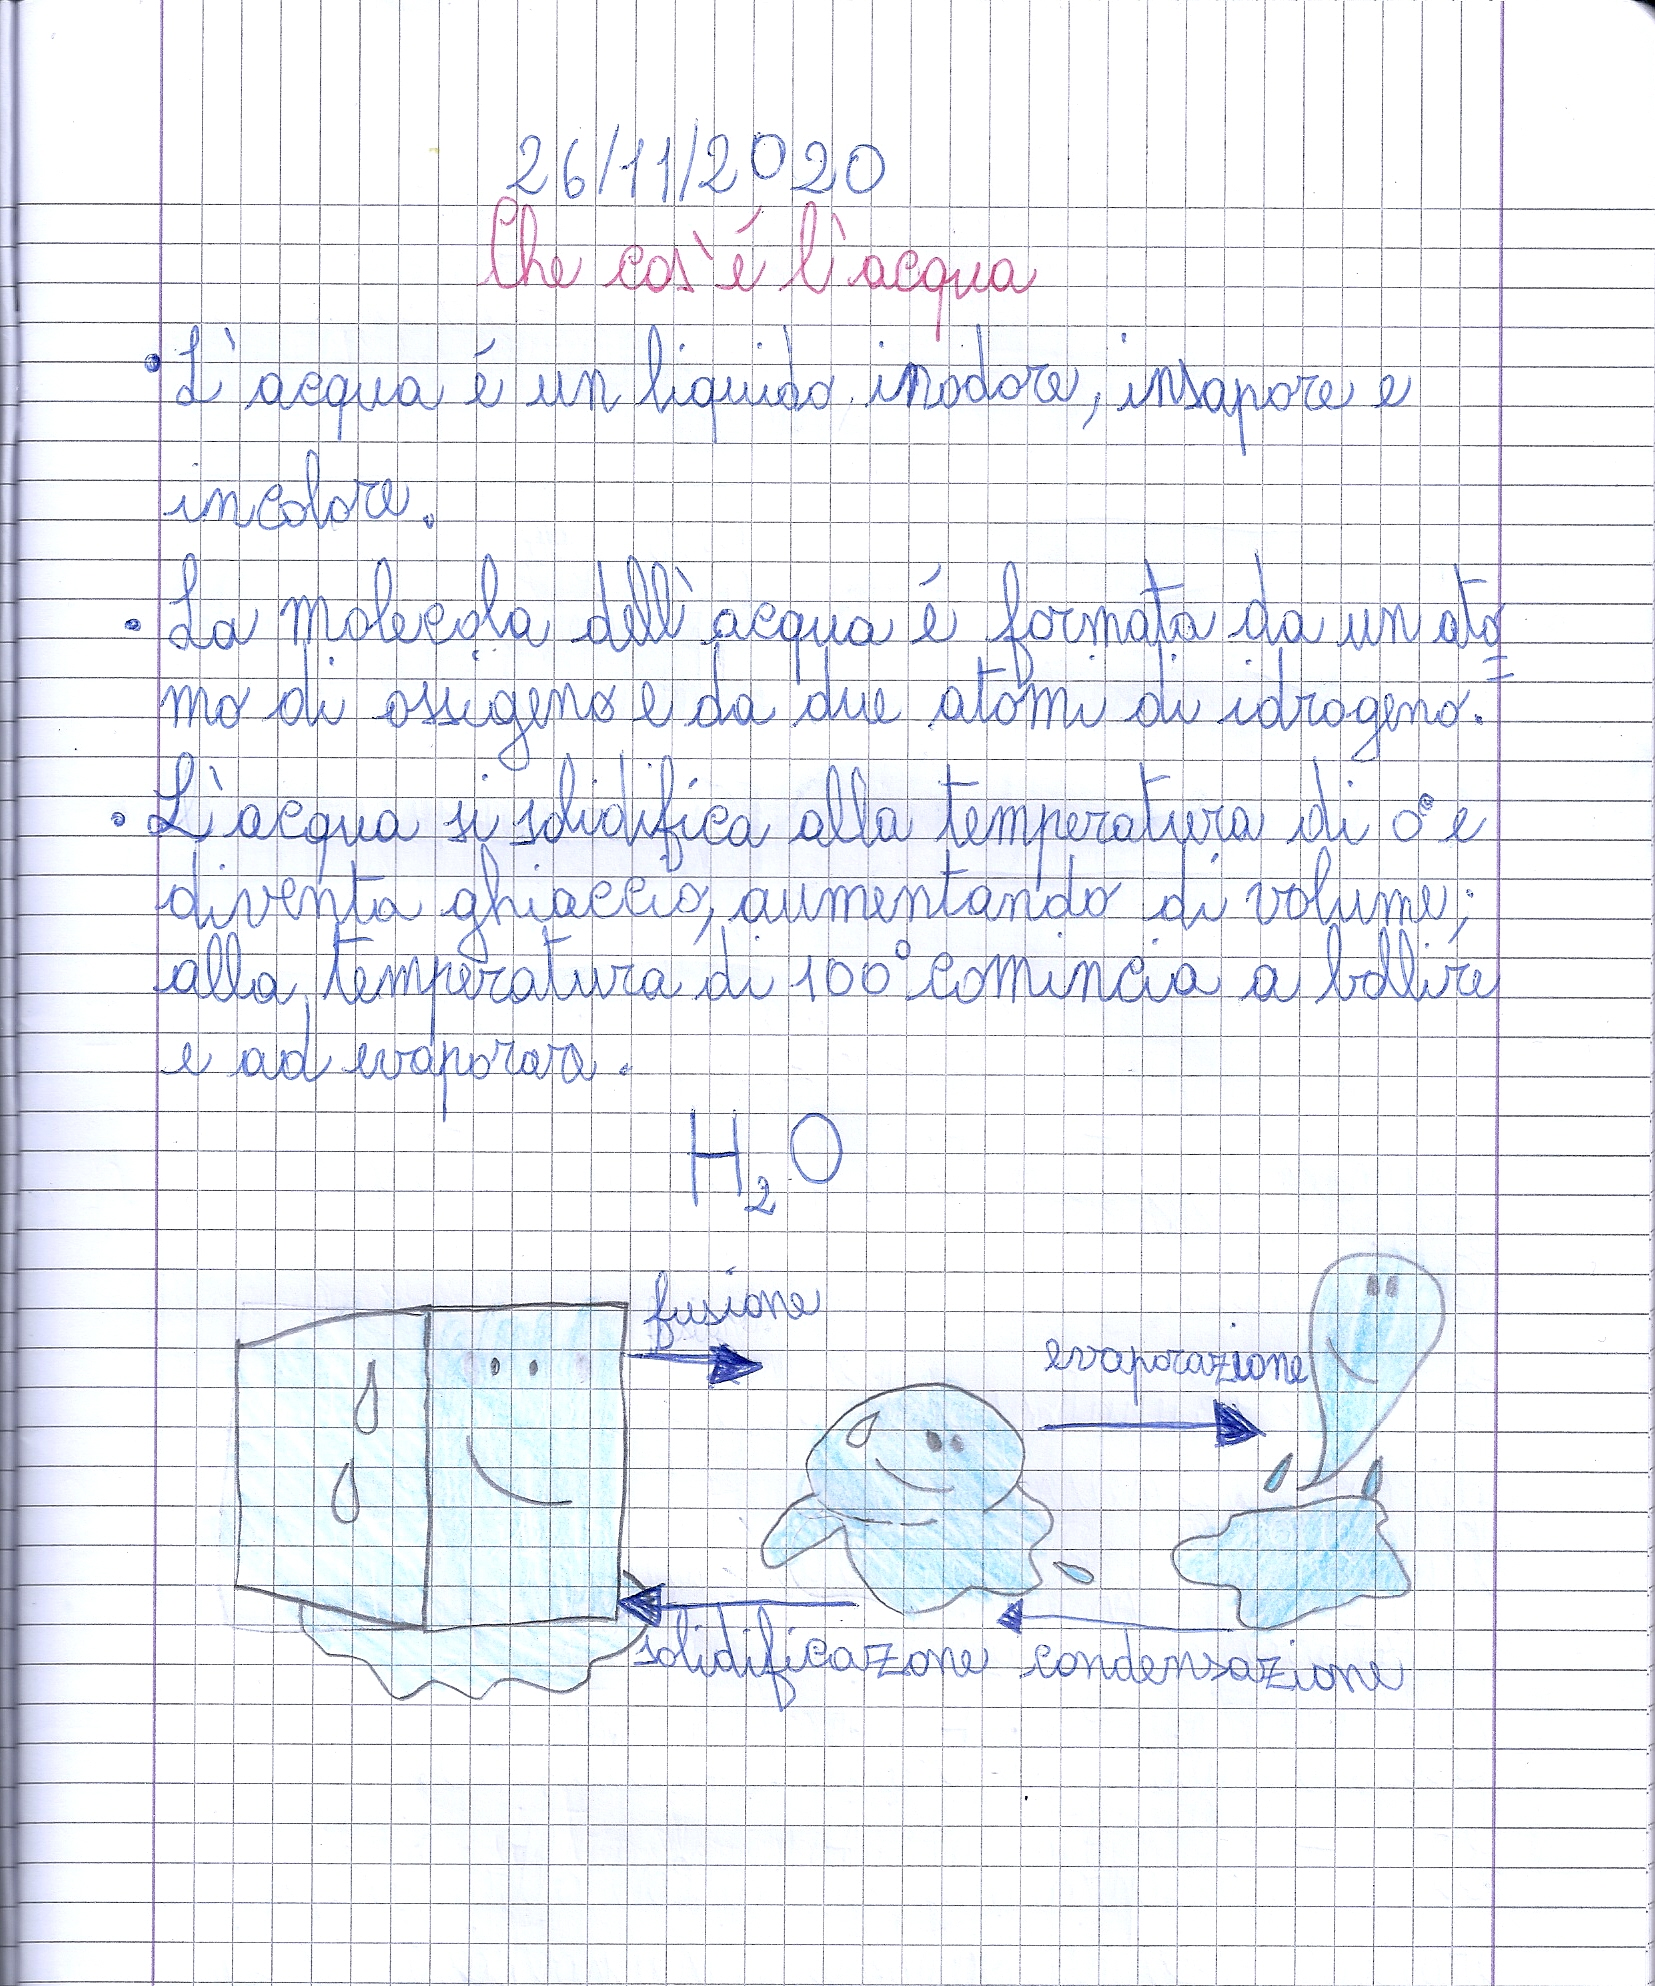 26/11/2020
Che cos'é l'acqua
• L'acqua é un liquido inodore, insapore e
incolore.
• La molecola dell'acqua é formata da un ato=
mo di ossigeno e da due atomi di idrogeno.
• L'acqua si solidifica alla temperatura di 0° e
diventa ghiaccio, aumentando di volume;
alla temperatura di 100° comincia a bollire
e ad evaporare.
H₂O
fusione
evaporazione
solidificazone condensazione